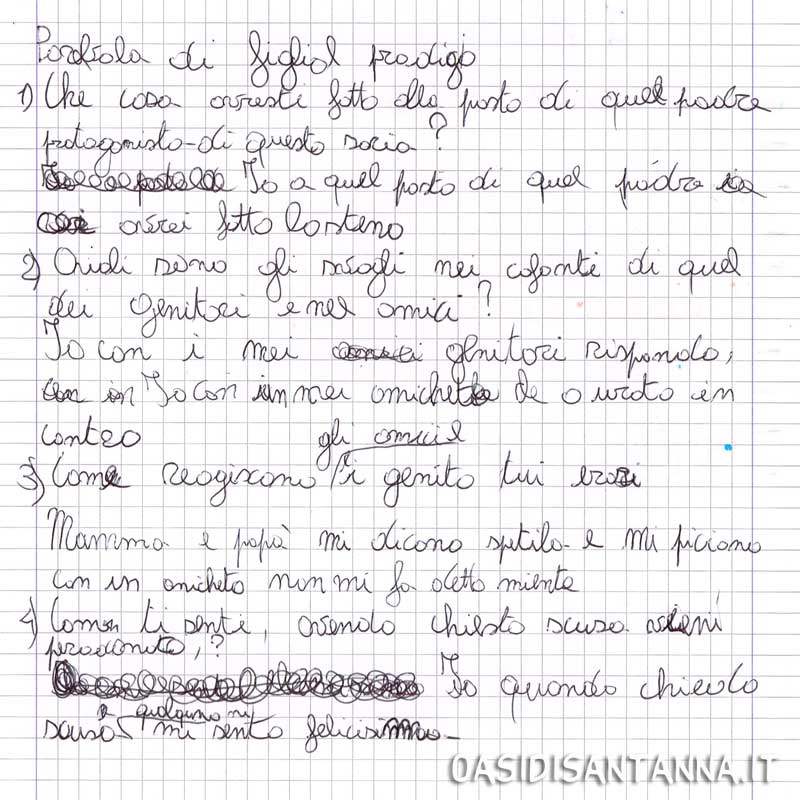 Parabola di figliol prodigo
1) Che cosa avresti fatto alla posto di quel padre
protagonista di questo soria?
Io a quel posto di quel padre
avrei fatto lo steno
2) Quidi sono gli sbagli nei cofonti di quel
dei genitori e nel amici?
Io con i mei genitori rispondo,
Io con un mei omicheto de o urato in
conteo
gli amici e
3) Come reagiscono i genito tui erori
Mamma e papà mi dicono spetilo e mi piciono
con in omicheto non mi fa detto niente
4) Come ti senti, avendo chiesto scusa
perdonato,?
Io quando chiedo
a qualquno mi
scusa mi sento felicisimo
OASIDISANTANNA.IT